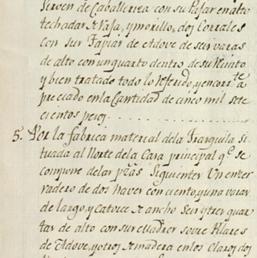 sirven de Caballeriza con su Pajar en alto
techadas de Vaja, y morillo, dos Corrales
con sus Tapias de Adove de seis varas
de alto con un quarto dentro de su recinto
y bien tratado todo lo referido, y en corrte
apreciado en la Cantidad de cinco mil sete
cientos pesos
5. Por la fabrica material dela Franquila si
tuada al Norte dela Casa principal qe. se
compone delas pzas. siguientes Un ener
radero de dos naves con ciento, y una varas
de largo, y catorce de ancho seis y tres quar
tas de alto con su cuadrer sovre Pilares
de Adove, y otros de madera en los Claros, dos